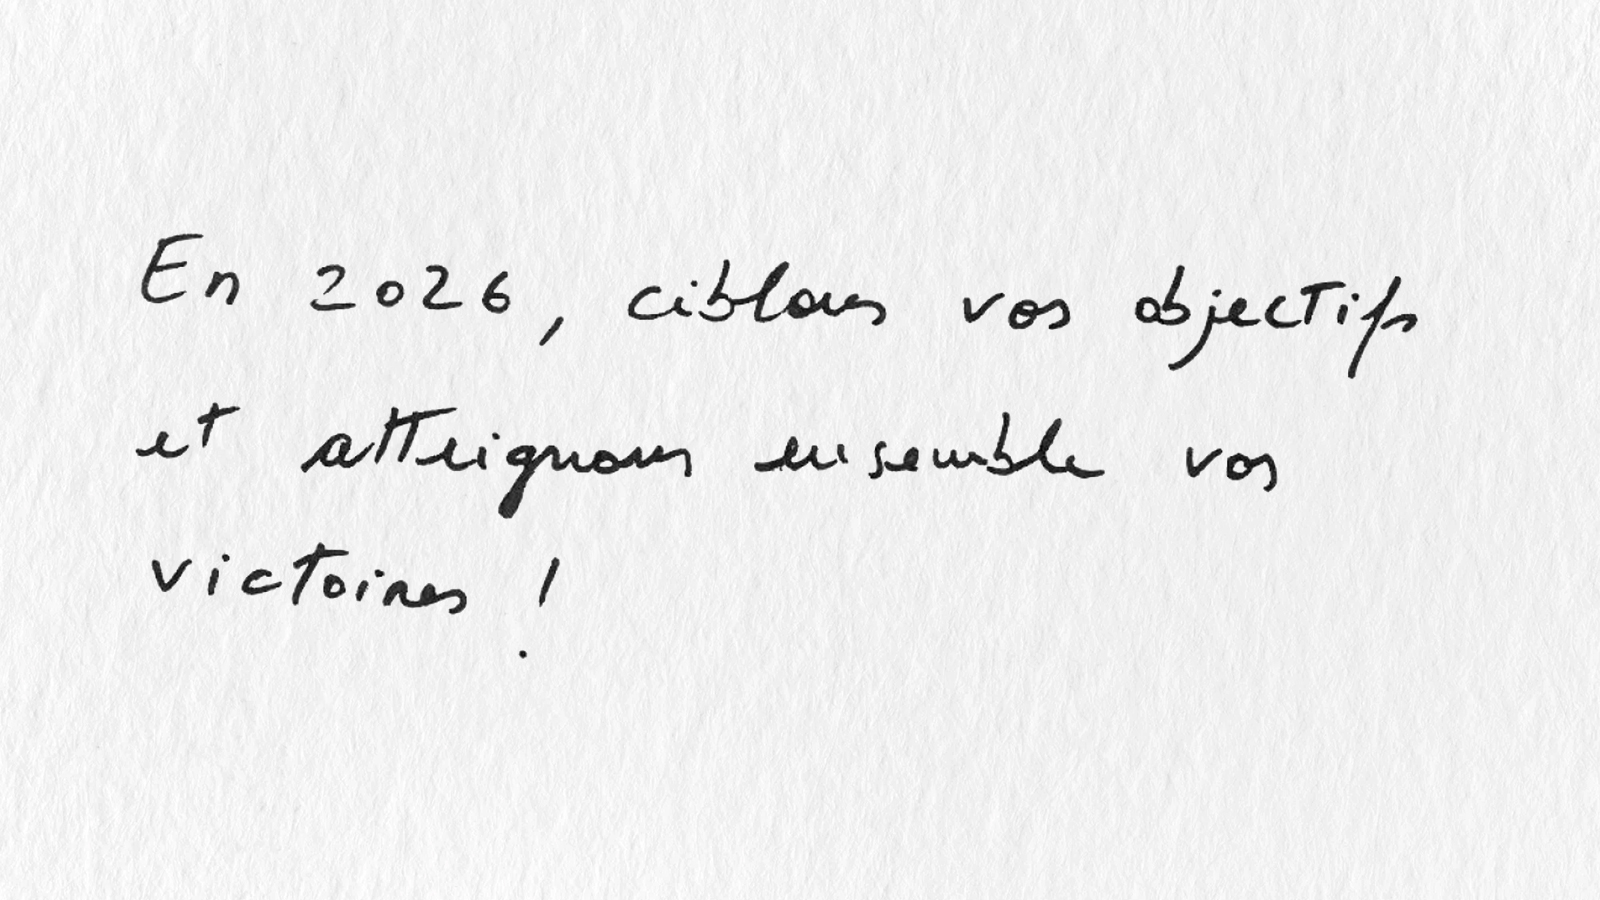 En 2026, ciblons vos objectifs
et atteignons ensemble vos
victoires !